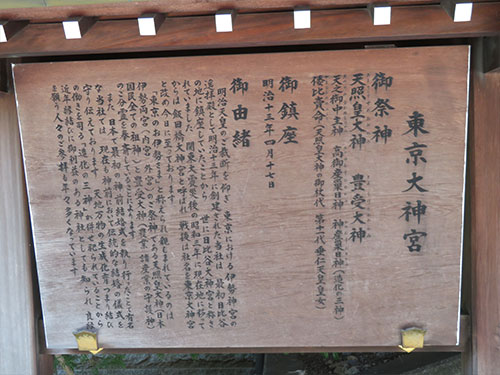 東京大神宮
御祭神
天照皇大神 豊受大神
天之御中主神 高御産巣日神 神産巣日神(造化の三神)
倭比賣命(天照皇大神の御杖代 第十一代 垂仁天皇皇女)
御鎮座
明治十三年四月十七日
御由緒
明治天皇のご裁断を仰ぎ 東京における伊勢神宮の
遙拝殿として明治十三年に創建された当社は 最初日比谷
の地に鎮座していたことから 世に日比谷大神宮と称さ
れていました 関東大震災後の昭和三年に現在地に移って
からは飯田橋大神宮と呼ばれ 戦後は社名を東京大神宮
と改め今日に至っております
「東京のお伊勢さま」と称えられ親しまれているのは
伊勢両宮(内宮 外宮)のご祭神である天照皇大神(日本
国民全ての祖神)と豊受大神(農業 諸産業の守護神)
のご分霊を奉斎していることによります
また 日本で最初の神前結婚式を執り行ったことで有名
な当社では 現在も神前において伝統的結婚の儀式を
守り伝えております 天地万物の生成化育つまり結び
の働きを司る「造化の三神」が併せ祀られていることから
近年縁結びに御利益のある神社としても知られ 良縁
を願う人々のご参拝も年々多くなっています